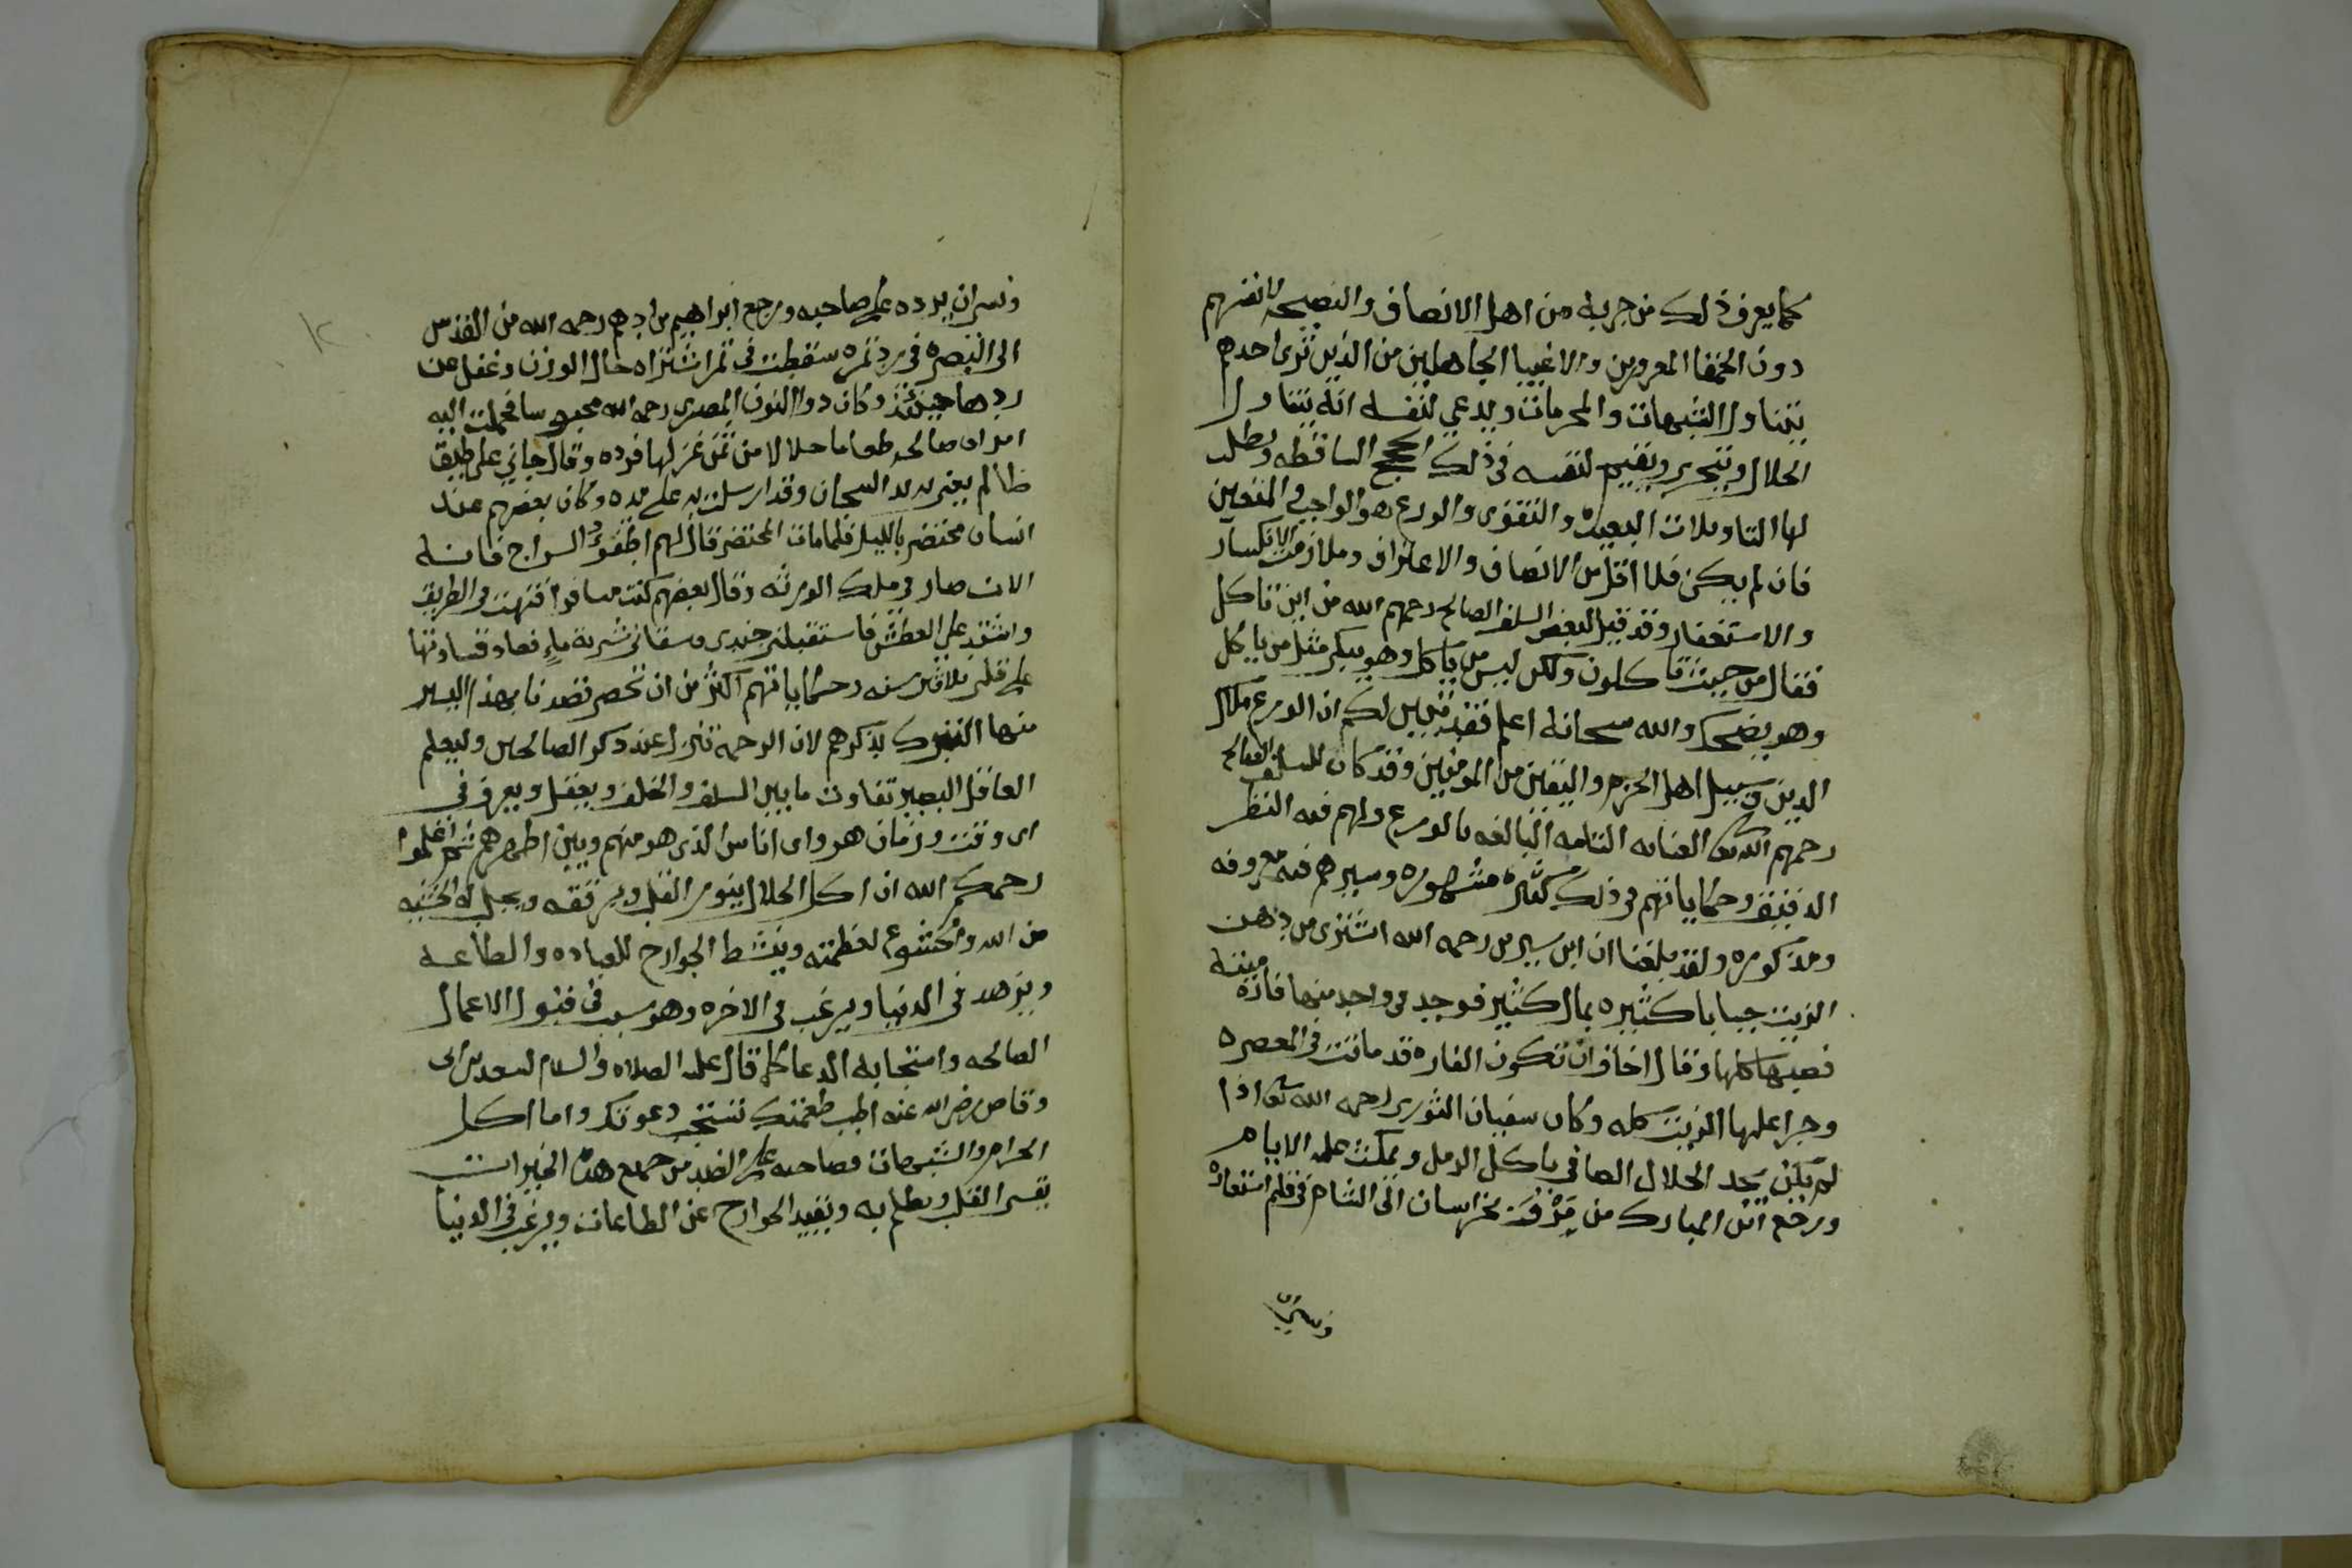 كما يعرف ذلك من جربه من اهل الانصاف والنصيحه لانفسهم
دون الحمقا المغرورين والاغبيا الجاهلين من الذين ترى احدهم
يتناول الشبهات والمحرمات ويدعي لنفسه انه يتناول
الحلال ويتحرى ويقيم لنفسه في ذلك الحجج الساقطه ويطلب
لها التاويلات البعيده والتقوى والورع هو الواجب المتعين
فان لم يكن فلا اقل من الانصاف والاعتراف وملازمت الانكسار
والاستغفار وقد قيل لبعض السلف الصالح رحمهم الله من اين تاكل
فقال من حيث تاكلون ولكن ليس من ياكل وهو يبكي مثل من ياكل
وهو يضحك والله سبحانه اعلم فقد تبين لكم ان الورع ملاك
الدين وسبيل اهل الحزم واليقين من المومنين وقد كان للسلف الصالح
رحمهم الله العنايه التامه البالغه بالورع ولهم فيه النظر
الدقيق وحكاياتهم في ذلك كثيره مشهوره وسيرهم فيه معروفه
ومذكوره ولقد بلغنا ان ابن سيرين رحمه الله اشترى من دهن
الزيت جبابا كثيره بمال كثير فوجد في واحد منها فاره ميته
فصبها كلها وقال اخاف ان تكون الفاره قد ماتت في المعصره
وجرا عليها الزيت كله وكان سفيان الثوري رحمه الله تعالى اذا
لم يكن يجد الحلال الصافي ياكل الرمل ويمكث عليه الايام
ورجع ابن المبارك من مرو بخراسان الى الشام في قلم استعاره
ونسي ان
ونسي ان يرده على صاحبه ورجع ابراهيم بن ادهم رحمه الله من القدس
الى البصره في رد تمره سقطت في تمر اشتراه حال الوزن وغفل عن
ردها حينئذ وكان ذوا النون المصري رحمه الله محبوسا فحملت اليه
امراه صالحه طعاما حلالا من ثمن غزلها فرده وقال جاني على طبق
ظالم يعني به يد السجان وقد ارسلت به على يده وكان بعضهم عند
انسان محتضر بالليل فلما مات المحتضر قال لهم اطفوا السراج فانه
الان صار في ملك الورثه وقال بعضهم كنت مسافرا فتهت في الطريق
واشتد علي العطش فاستقبلني جندي وسقاني شربة ماء فعاد قساوتها
على قلبي ثلاثين سنه وحكاياتهم اكثر من ان تحصر قصدنا بهذا اليسير
منها التبرك بذكرهم لان الرحمه تنزل عند ذكر الصالحين وليعلم
العاقل البصير تفاوت ما بين السلف والخلف ويعقل ويعرف في
اي وقت وزمان هو واي اناس الذي هو منهم وبين اظهرهم ثم اعلموا
رحمكم الله ان اكل الحلال ينور القلب ويرققه ويجلب له الخشيه
من الله والخشوع لعظمته وينشط الجوارح للعباده والطاعه
ويزهد في الدنيا ويرغب في الاخره وهو سبب في قبول الاعمال
الصالحه واستجابه الدعا كما قال عليه الصلاه والسلام لسعد بن ابي
وقاص رضي الله عنه اطب طعمتك تستجب دعوتك واما اكل
الحرام والشبهات فصاحبه على الضد من جميع هذه الخيرات
يقسي القلب ويظلم به ويقيد الجوارح عن الطاعات ويرغب في الدنيا